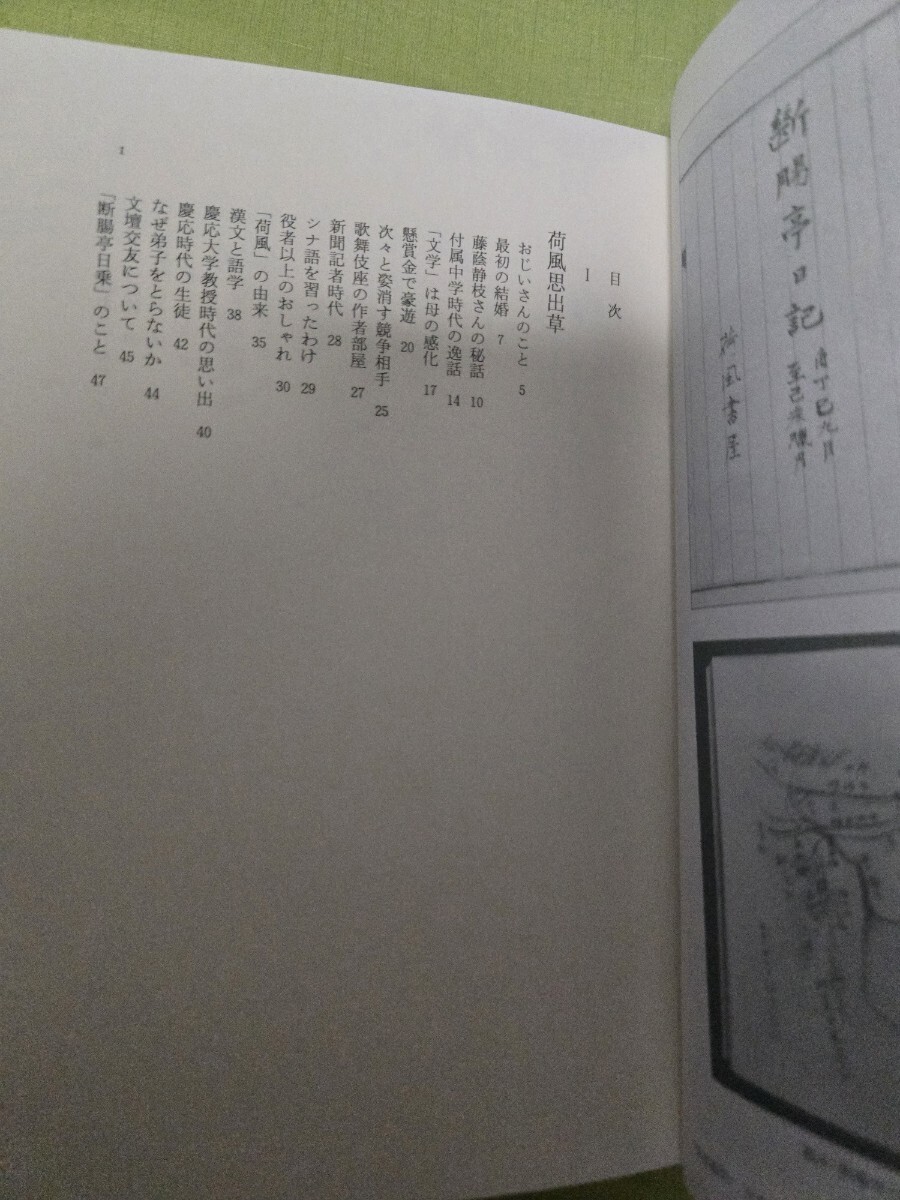 斷腸亭日記
自丁巳九月
至己未臘月
荷風書屋
目次
I
荷風思出草
おじいさんのこと 5
最初の結婚 7
藤蔭静枝さんの秘話 10
付属中学時代の逸話 14
「文学」は母の感化 17
懸賞金で豪遊 20
次々と姿消す競争相手 25
歌舞伎座の作者部屋 27
新聞記者時代 28
シナ語を習ったわけ 29
役者以上のおしゃれ 30
「荷風」の由来 35
漢文と語学 38
慶応大学教授時代の思い出 40
慶応時代の生徒 42
なぜ弟子をとらないか 44
文壇交友について 45
「断腸亭日乗」のこと 47
1